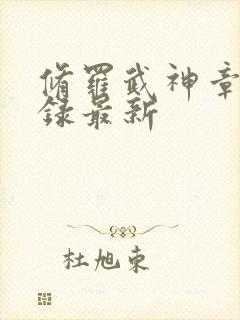 脩羅武神章
錄最新
杜旭東